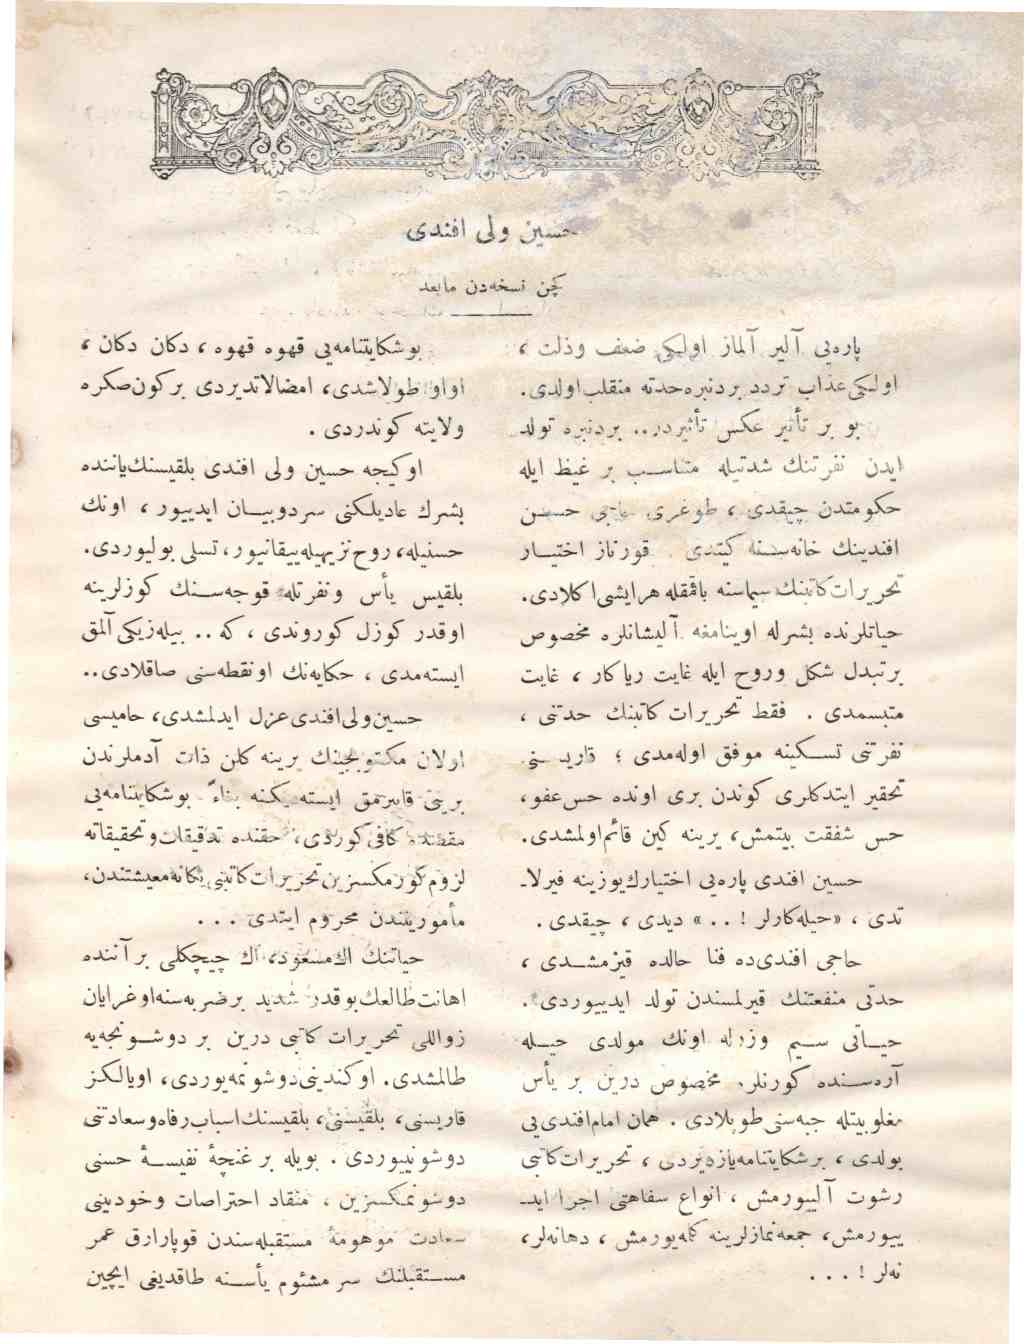 حسین ولی افندی
كچن نسخه‌دن مابعد
پاره‌یی آلیر آلماز اولكی ضعف وذلت ،
اولكی عذاب تردد بردنبره حدته منقلب اولدی.
بو بر تأثیر عكس تأثیردر.. بردنبره تولد
ایدن نفرتنك شدتیله متناسب بر غیظ ایله
حكومتدن چیقدی ، طوغری حاجی حسین
افندینك خانه‌سنه كیتدی . قورناز اختیار
تحریرات كاتبنك سیماسنه باقمقله هر ایشی اكلادی.
حیاتلرنده بشرله اوینامغه آلیشانلره مخصوص
برتبدل شكل وروح ایله غایت ریا كار ، غایت
متبسمدی . فقط تحریرات كاتبنك حدتنی ،
نفرتنی تسكینه موفق اوله‌مدی ؛ قاریسنی
تحقیر ایتدكلری كوندن بری اونده حس عفو،
حس شفقت بیتمش، یرینه كین قائم اولمشدی.
حسین افندی پاره‌یی اختیارك یوزینه فیرلا-
تدی ، «حیله‌كارلر ! ..» دیدی ، چیقدی.
حاجی افندی‌ده فنا حالده قیزمشدی ،
حدتی منفعتنك قیرلمسندن تولد ایدییوردی.
حیاتی سیم وزرله اونك مولدی حیله
آره‌سنده كورنلره مخصوص درین بر یأس
مغلوبیتله جبه‌سنی طوپلادی . همان امام افندی‌یی
بولدی ، برشكایتنامه یازدیردی ، تحریرات كاتبی
رشوت آلییورمش ، انواع سفاهتی اجرا اید-
ییورمش، جمعه نمازلرینه كلمه‌یورمش ، دهانه‌لر،
نه‌لر ! ...
بوشكایتنامه‌یی قهوه قهوه ، دكان دكان ،
اواو طولاشدی، امضالاتدیردی بركون صكره
ولایته كوندردی .
اوكیجه حسین ولی افندی بلقیسنك یاننده
بشرك عادیلكنی سردوبیان ایدییور ، اونك
حسنیله، روح نزیهیله ییقانیور، تسلی بولیوردی.
بلقیس یأس ونفرتله قوجه‌سنك كوزلرینه
اوقدر كوزل كوروندی ، كه .. بیله‌زیكی آلمق
ایسته‌مدی ، حكایه‌نك او نقطه‌سنی صاقلادی..
حسین ولی افندی عزل ایدلمشدی، حامیسی
اولان مكتوبجینك یرینه كلن ذات آدملرندن
برینی قاییرمق ایسته‌دیكنه بناءً بوشكایتنامه‌یی
مقصدنه كافی كوردی، حقنده تدقیقات وتحقیقاته
لزوم كورمكسزین تحریرات كاتبنی یكانه معیشتندن،
مأموریتندن محروم ایتدی ...
حیاتنك اك مسعود، اك چیچكلی برآننده
اهانت طالعك بوقدر شدید برضربه‌سنه اوغرایان
زواللی تحریرات كاتبی درین بر دوشونجه‌یه
طالمشدی. او كندینی دوشونمه‌یوردی، اویالكز
قاریسنی، بلقیسنی، بلقیسنك اسباب رفاه وسعادتنی
دوشونییوردی . بویله بر غنچهٔ نفیسهٔ حسنی
دوشونمكسزین ، منقاد احتراصات وخودبینی
سعادت موهومهٔ مستقبله‌سندن قوپارارق عمر
مستقبلنك سر مشئوم یأسنه طاقدیغی ایچین